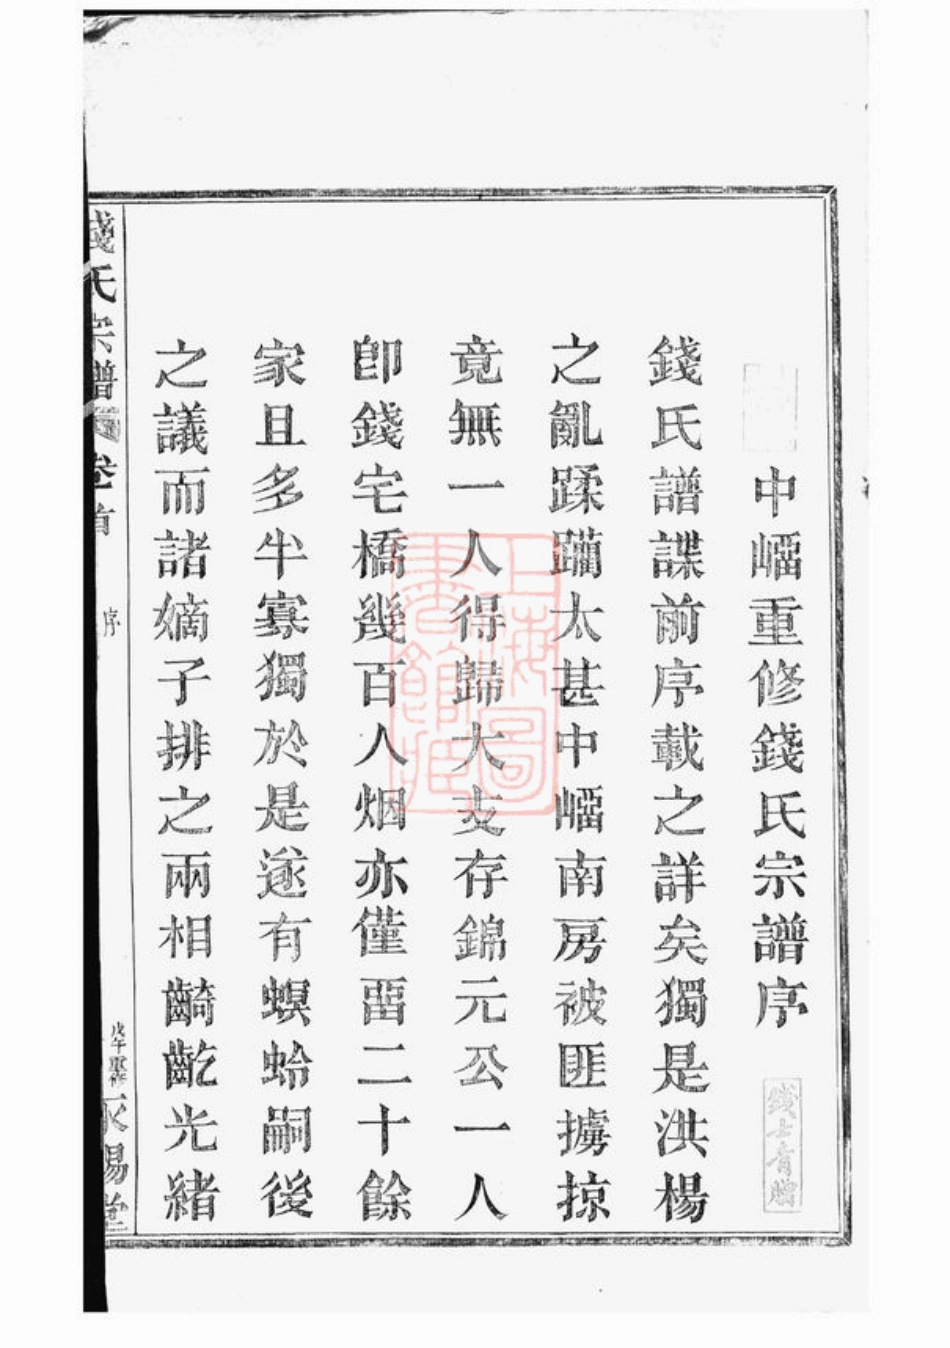 中嵧重修錢氏宗譜序
錢氏譜諜前序載之詳矣獨是洪楊
之亂蹂躪太甚中嵧南房被匪擄掠
竟無一人得歸大支存錦元公一人
卽錢宅橋幾百人烟亦僅畱二十餘
家且多半寡獨於是遂有螟蛉嗣後
之議而諸嫡子排之兩相齮齕光緒
錢氏宗譜
卷首
序
戊午重修
錢士青贈
上海圖書館藏